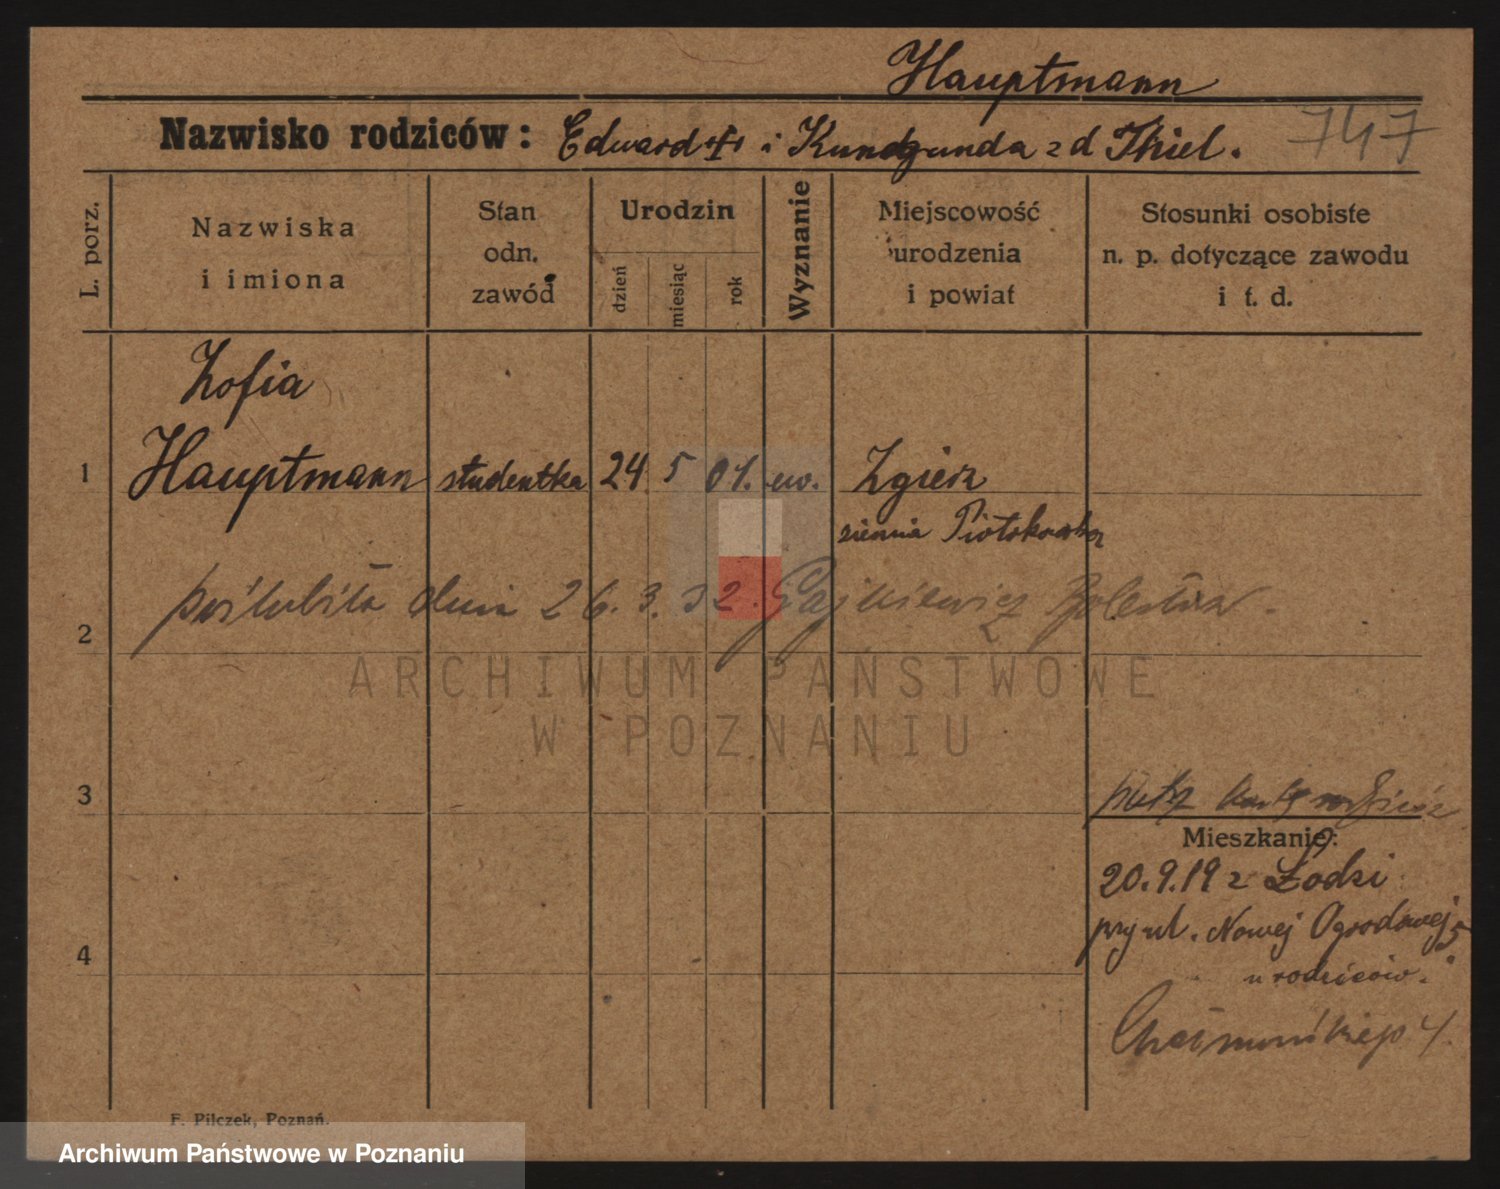 Hauptmann
Nazwisko rodziców: Edward i Kunegunda z d Thiel. 747
L. porz.
Nazwiska
i imiona
Stan
odn.
zawód
Urodzin
dzień
miesiąc
rok
Wyznanie
Miejscowość
urodzenia
i powiat
Stosunki osobiste
n. p. dotyczące zawodu
i t. d.
Zofia
1 Hauptmann studentka 24 5 01. ew. Zgierz
ziemia Piotrkowska
poślubiła dnia 26.3.32. Bolesław.
2
ARCHIWUM PAŃSTWOWE
W POZNANIU
3
Mieszkanie:
20.9.19 z Łodzi
przy ul. Nowej Ogrodowej 5
4
u rodziców.
Chełmońskiego 4.
F. Pilczek, Poznań.
Archiwum Państwowe w Poznaniu